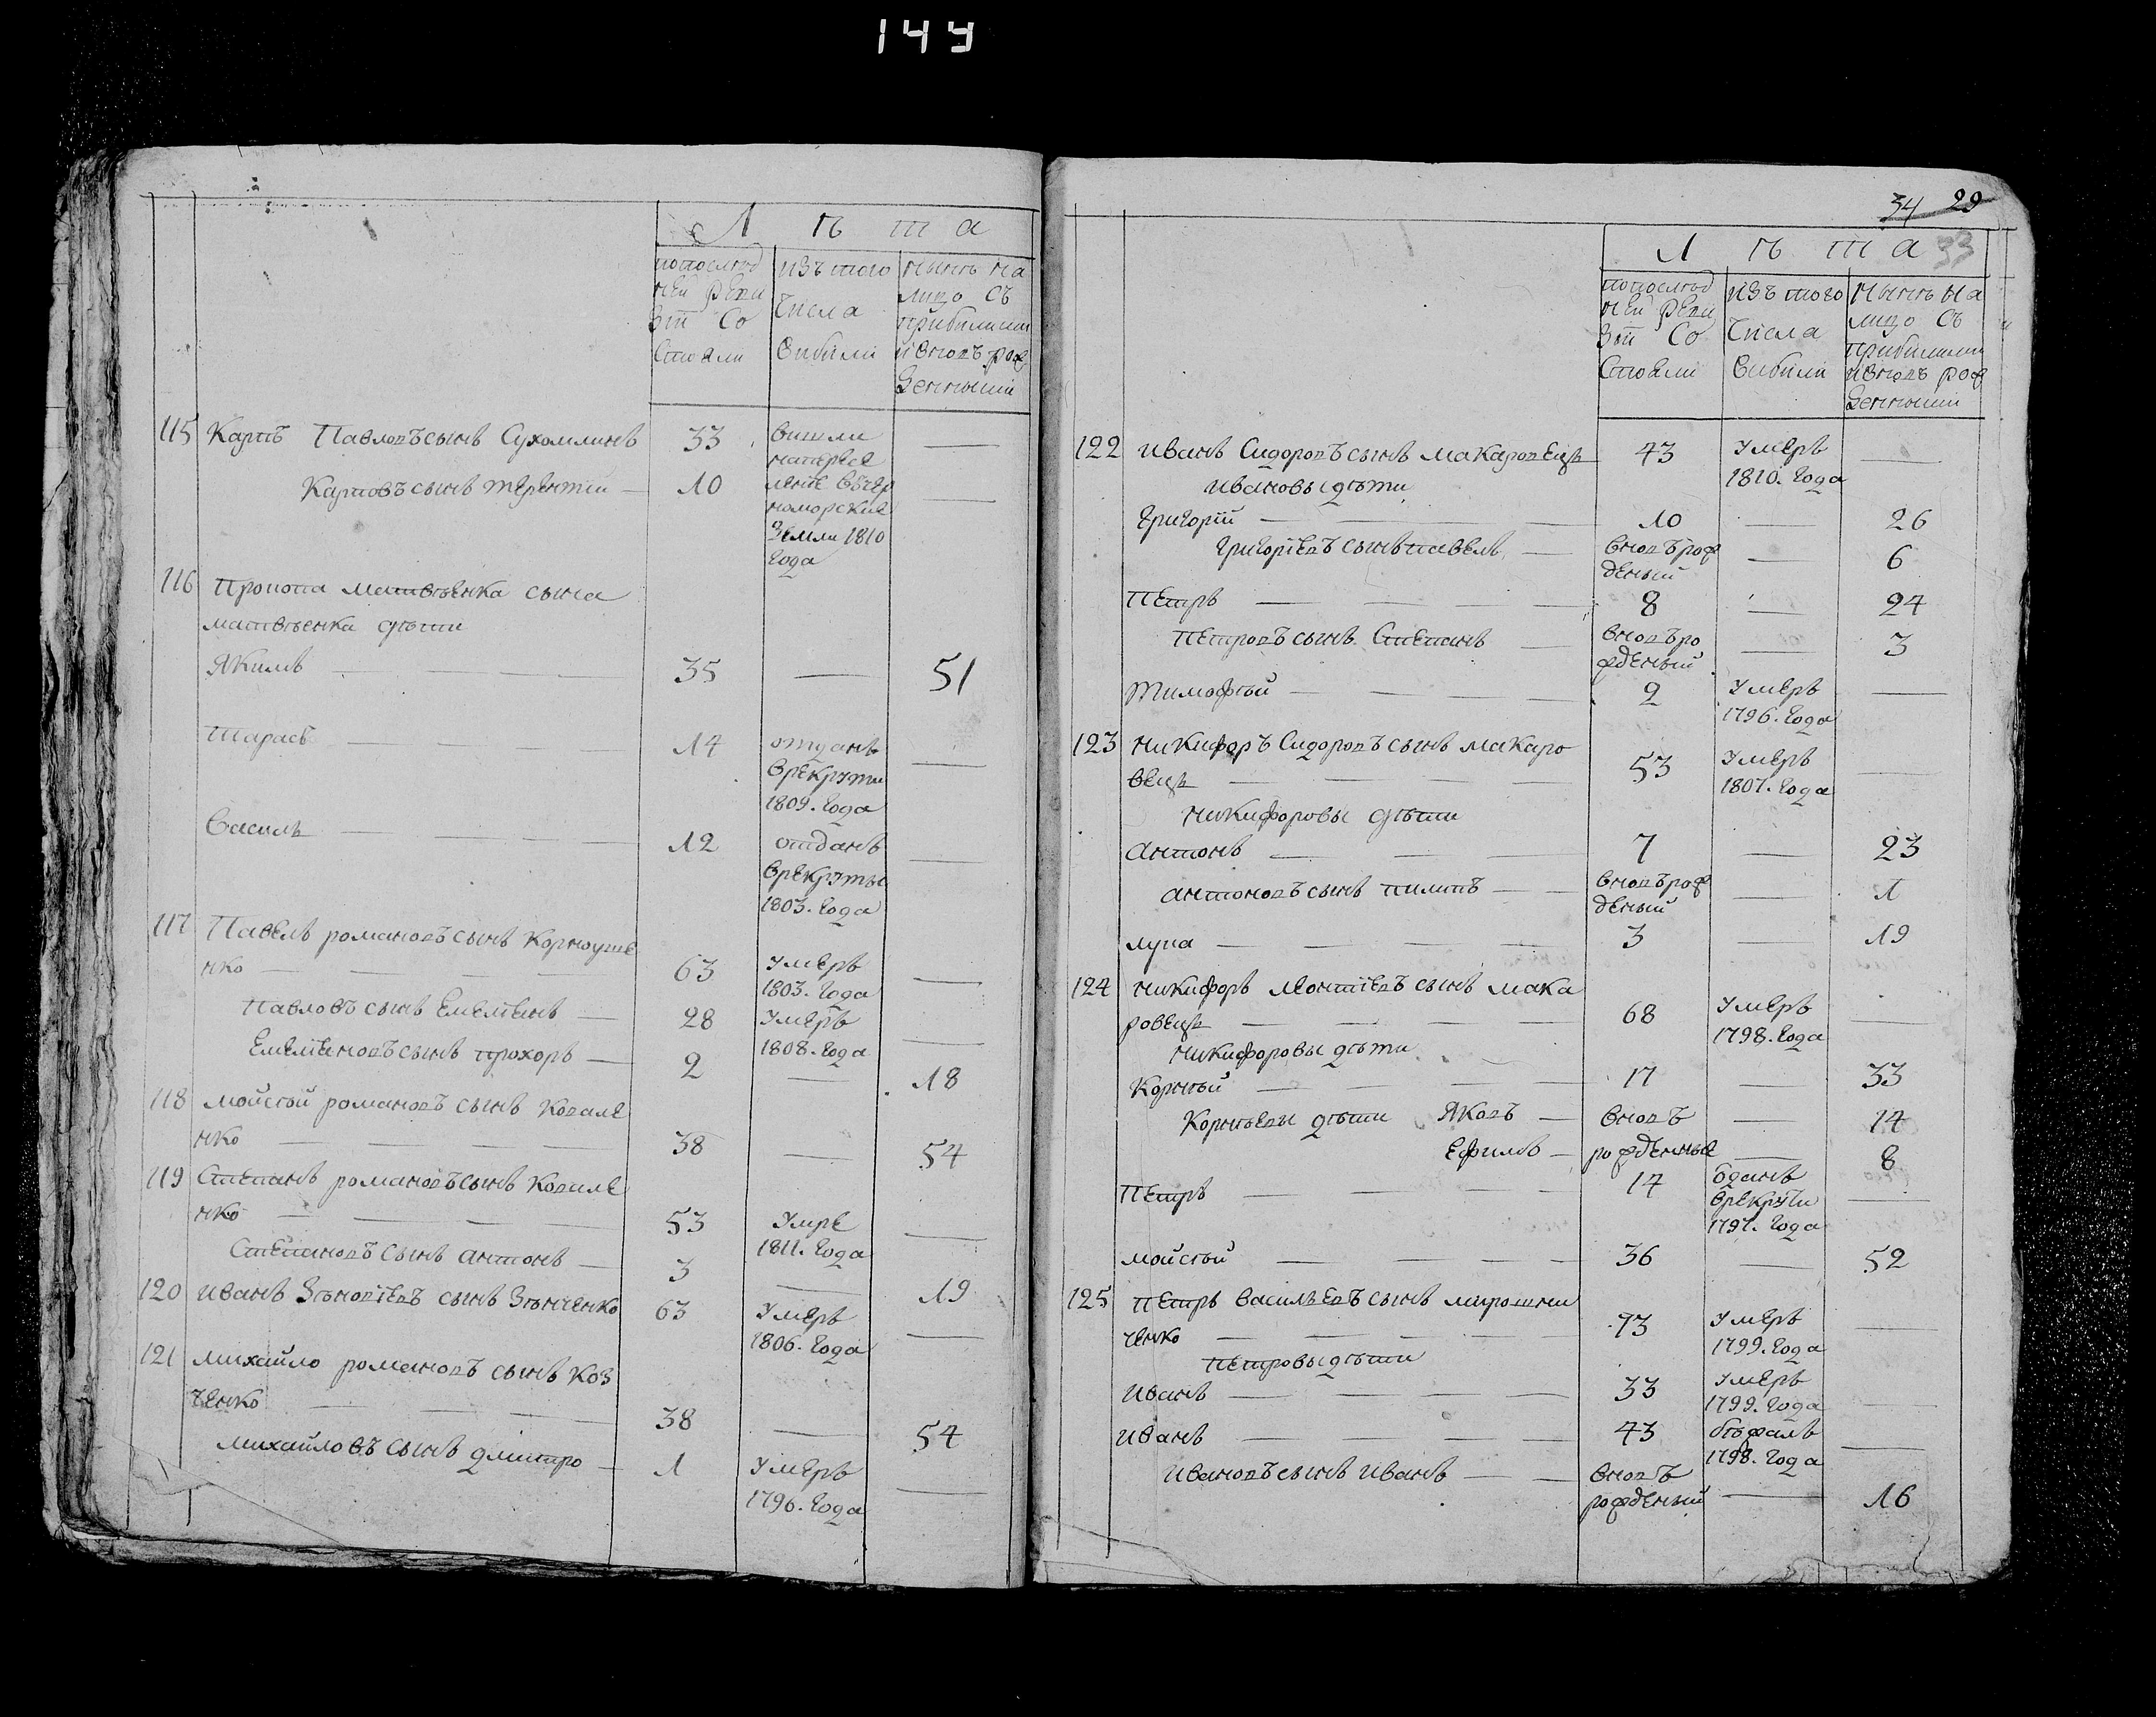 144
Л ѣ т а
попослѣд
ней Реви
зіи Со
стояли
изъ того
числа
выбыли
нынѣ на
лицо съ
прибылыми
и вновь рож
денными
115 Карпъ Павловъ сынъ Сухомлинъ 33 вишли —
напересе
Карповъ сынъ терентій — 10 ленїе вчер —
номорские
земли 1810
года
116 Прокопа матвѣенка сына
матвѣенка дѣти
Якимъ — 35 — 51
Тарасъ — 14 отданъ —
врекруты
1809. года
Василь — 12 отданъ —
врекруты
1803. года
117 Павелъ романовъ сынъ Корноуше
нко — 63 умеръ —
1803. года
Павловъ сынъ Емелїенъ — 28 умеръ —
1808. года
Емелїеновъ сынъ прохоръ — 2 — 18
118 мойсѣй романовъ сынъ Ковале
нко — 38 — 54
119 Степанъ романовъ сынъ Ковале
нко — 53 умре —
1811. года
Степановъ сынъ антонъ — 3 — 19
120 иванъ Зѣновїевъ сынъ Зѣнченко 63 умеръ —
1806. года
121 михайло романовъ сынъ Коз
ченко — 38 — 54
михайловъ сынъ дмитро — 1 умеръ —
1796. года
34 29
33
Л ѣ т а
попослѣд
ней Реви
зіи Со
стояли
изъ того
числа
выбыли
нынѣ на
лицо съ
прибылыми
и вновь рож
денными
122 иванъ Сидоровъ сынъ макаровецъ 43 умеръ —
1810. года
ивановы дѣти
григорій — 10 — 26
григорїевъ сынъ павелъ — вновь рож — 6
деный
петръ — 8 — 24
петровъ сынъ Степанъ — вновь ро — 3
жденый
тимофѣй — 2 умеръ —
1796. года
123 никифоръ Сидоровъ сынъ макаро
вецъ — 53 умеръ —
1807. года
никифоровы дѣти
антонъ — 7 — 23
антоновъ сынъ пилипъ — вновь рож — 1
деный
лука — 3 — 19
124 никифоръ леонтїевъ сынъ мака
ровецъ — 68 умеръ —
1798. года
никифоровы дѣти
Корнѣй — 17 — 33
Корнѣевы дѣти Яковъ — вновь — 14
Ефимъ — рожденные — 8
петръ — 14 оданъ —
врекруты
1797. года
мойсѣй — 36 — 52
125 петръ васильевъ сынъ мирошни
ченко — 73 умеръ —
1799. года
петровы дѣти
иванъ — 33 умеръ —
1799. года
иванъ — 43 бѣжалъ —
1798. года
ивановъ сынъ иванъ — вновь — 16
рожденый